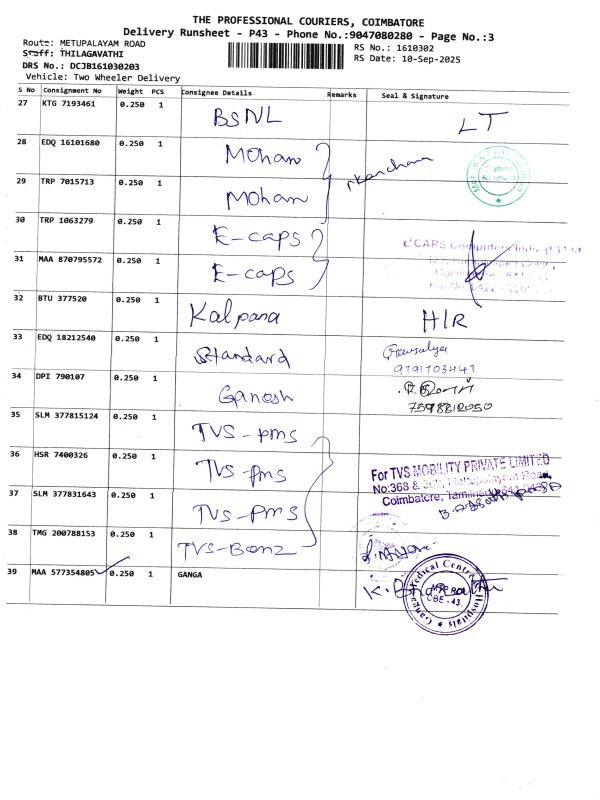 THE PROFESSIONAL COURIERS, COIMBATORE
Delivery Runsheet - P43 - Phone No.:9047080280 - Page No.:3
Route: METUPALAYAM ROAD
Staff: THILAGAVATHI
DRS No.: DCJB161030203
Vehicle: Two Wheeler Delivery
RS No.: 1610302
RS Date: 10-Sep-2025
S No Consignment No Weight PCS Consignee Details Remarks Seal & Signature
27 KTG 7193461 0.250 1 BSNL LT
28 EDQ 16101680 0.250 1 Mohan
29 TRP 7015713 0.250 1 Mohan
30 TRP 1063279 0.250 1 E-caps
31 MAA 870795572 0.250 1 E-caps
E'CAPS Computers India (P) Ltd
32 BTU 377520 0.250 1 Kalpana H/R
33 EDQ 18212540 0.250 1 Standard
9791703441
34 DPI 790107 0.250 1 Ganesh
7598812050
35 SLM 377815124 0.250 1 TVS-pms
36 HSR 7400326 0.250 1 TVS-pms
For TVS MOBILITY PRIVATE LIMITED
No:368 & Mettupalayam Road,
Coimbatore, Tamilnadu 641 043
37 SLM 377831643 0.250 1 TVS-pms
38 TMG 200788153 0.250 1 TVS-Benz
39 MAA 577354805 0.250 1 GANGA
Medical Centre
Hospitals
Ganga
MTP ROAD
CBE-43